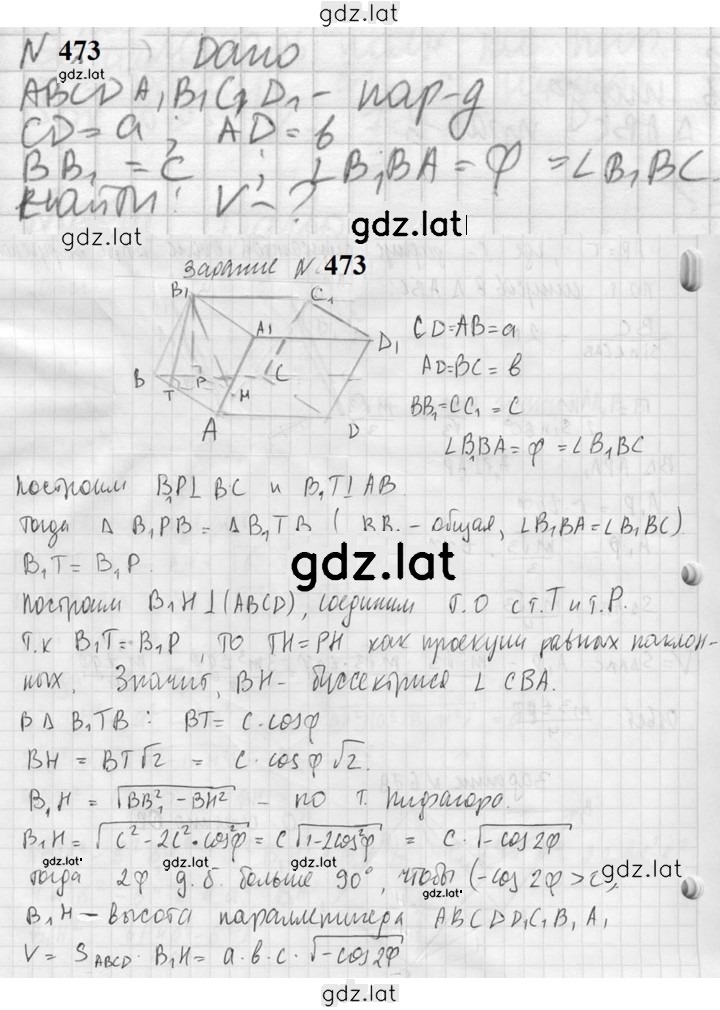 gdz.lat
N 473 Дано
gdz.lat
ABCD A₁B₁C₁D₁ - пар-д
CD=a; AD=в
BB₁ = C ; ∠B₁BA = φ = ∠B₁BC.
Найти: V - ?
gdz.lat
gdz.lat
Задание N. 473
B₁
C₁
A₁
D₁
B
T
P
H
C
A
D
CD=AB=a
AD=BC= в
BB₁=CC₁ = C
∠B₁BA= φ = ∠B₁BC
построим B₁P⊥ BC и B₁T⊥AB.
тогда △ B₁PB = △B₁TB ( BB₁ - общая, ∠B₁BA=∠B₁BC)
B₁T= B₁P.
gdz.lat
построим B₁H⊥(ABCD), соединим т.О с т.Т и т.Р.
т.к B₁T=B₁P, то TH=PH как проекции равных наклон-
ных. Значит, BH- биссектриса ∠ CBA.
В △ B₁TB : BT= C·cosφ
BH = BT√2 = C·cosφ√2.
B₁H = √BB₁²-BH² - по т. Пифагора.
B₁H= √C²-2C²·cos²φ = C√1-2cos²φ = C·√-cos2φ
gdz.lat gdz.lat gdz.lat
тогда 2φ д.б. больше 90°, чтобы (-cos 2φ >
gdz.lat gdz.lat
B₁H-высота параллепипера ABCDD₁C₁B₁A₁
V= S_ABCD· B₁H= a·в·c·√-cos2φ
gdz.lat
gdz.lat